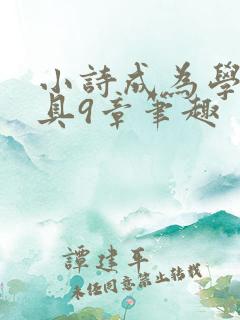 小詩成為學
具9章筆趣
譚建平
未任同意禁止轉載